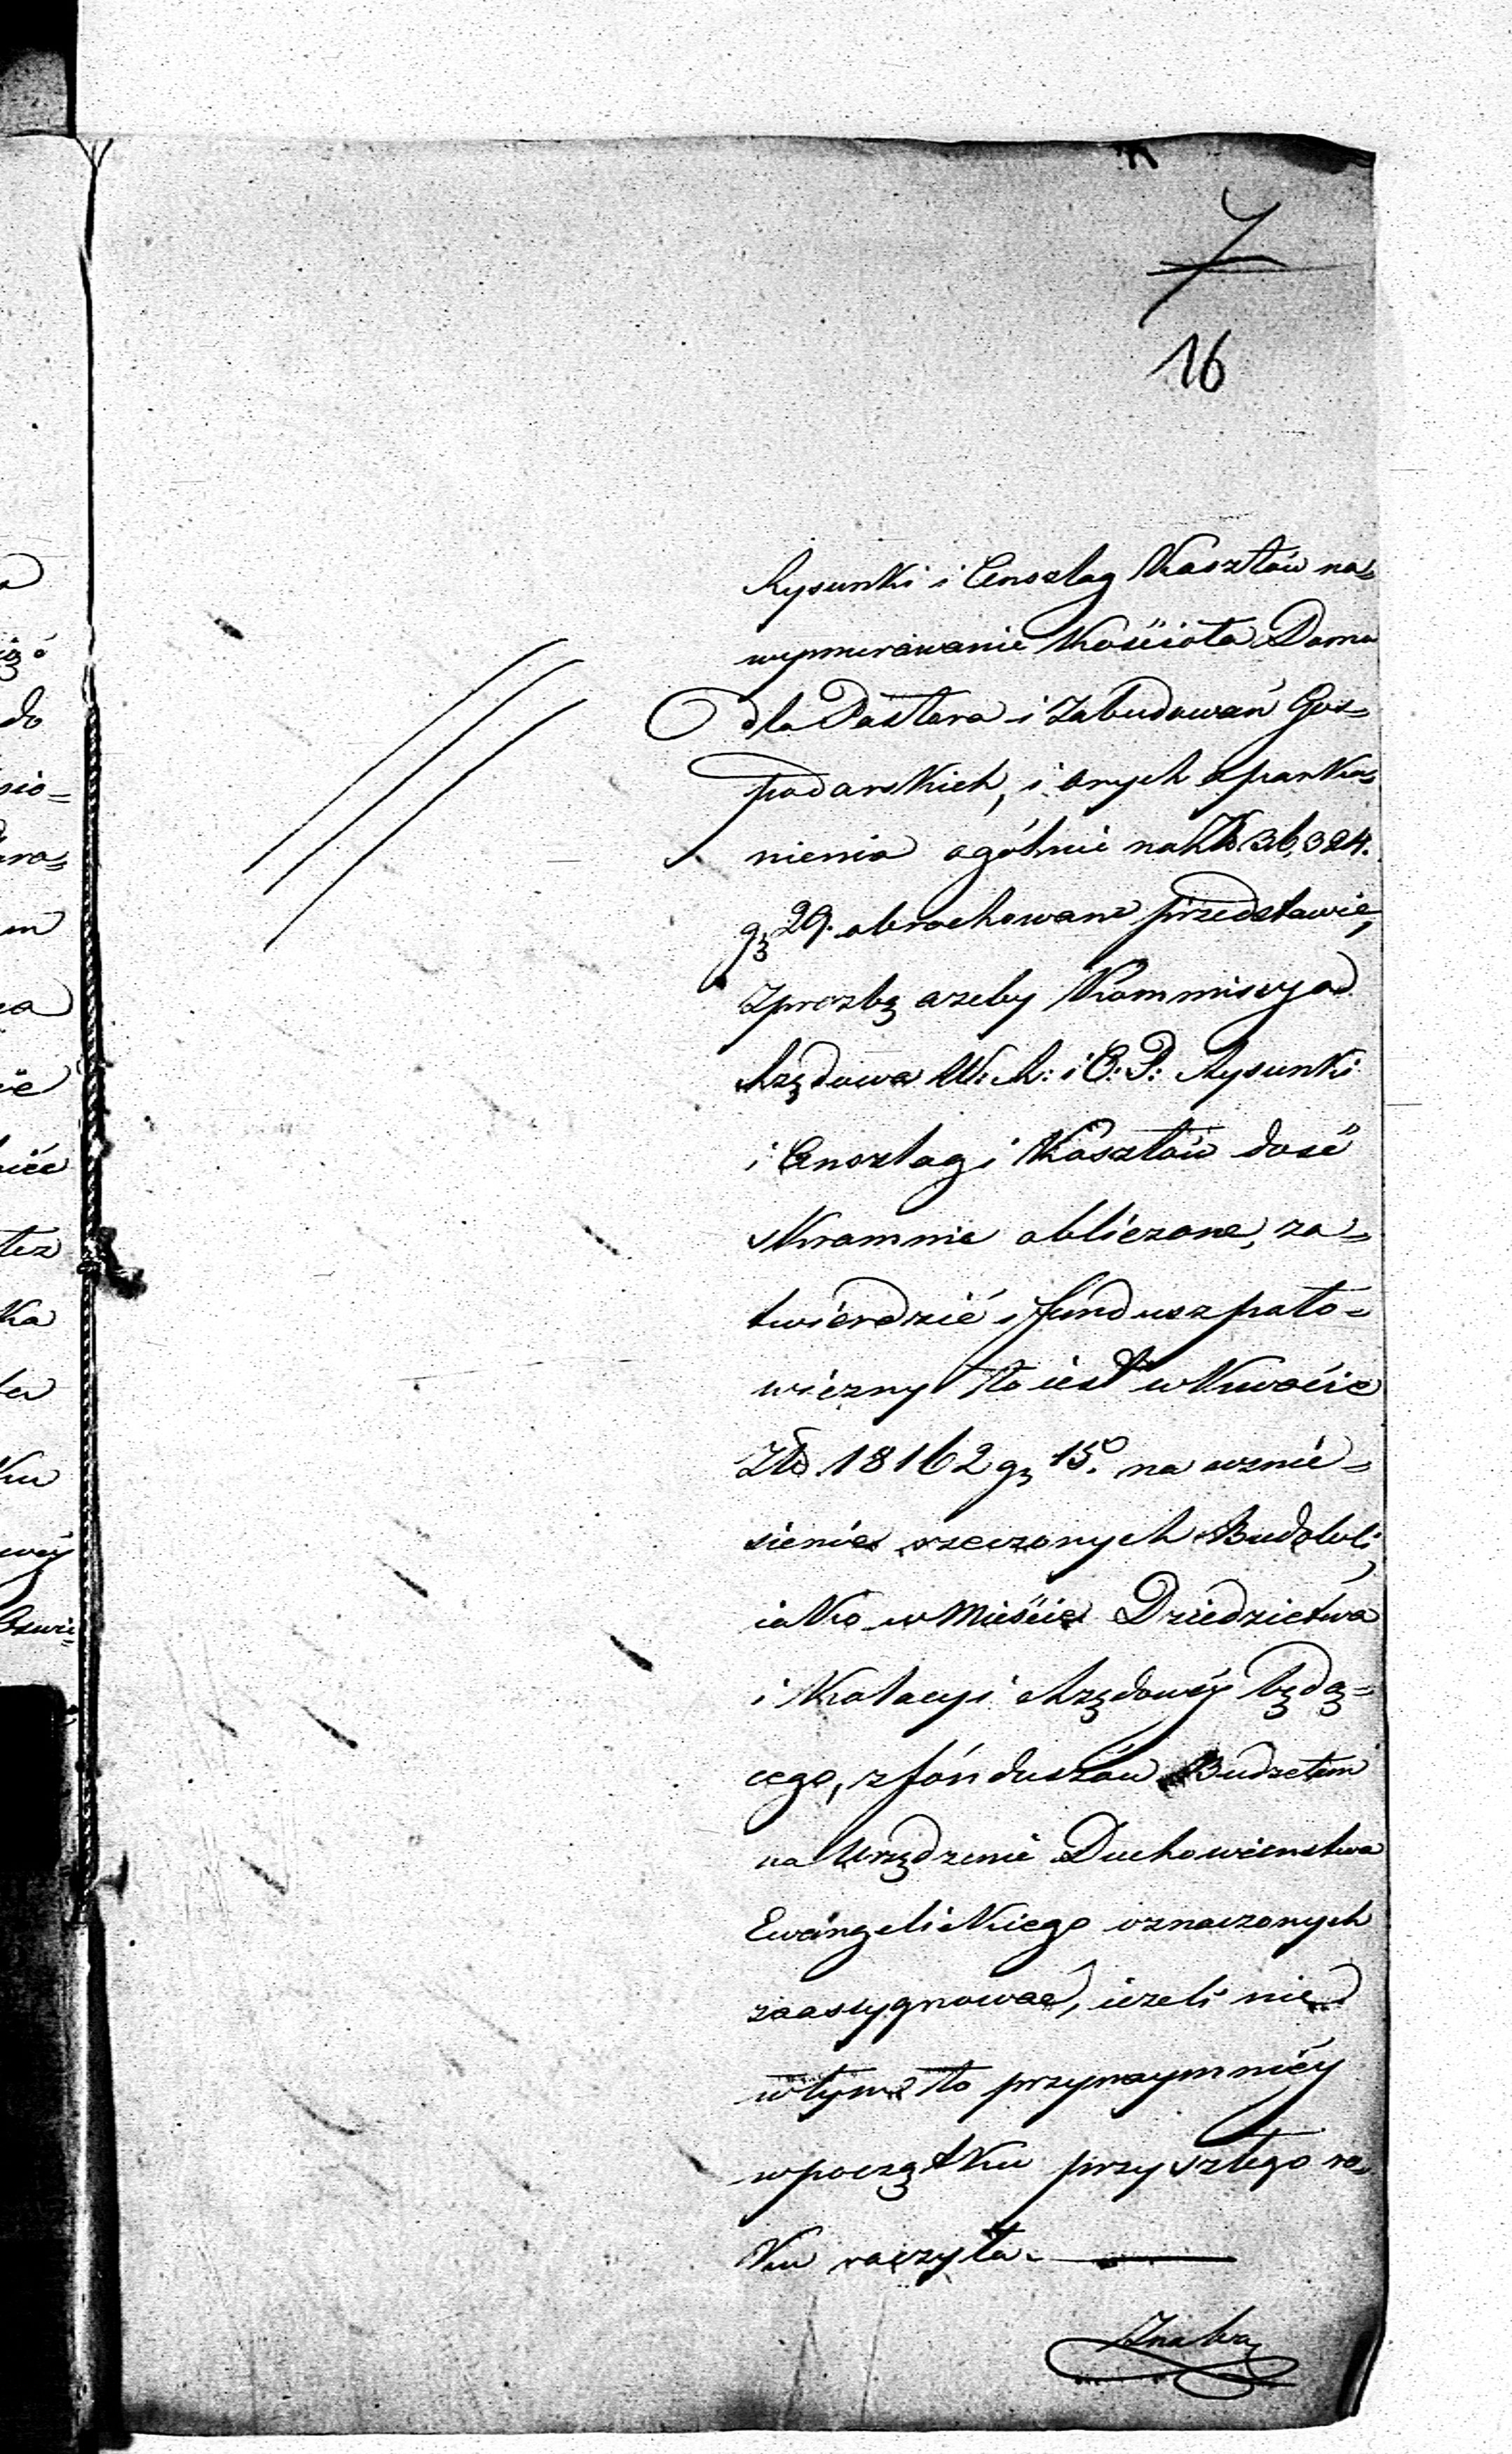 7
16
Rysunki i Anszlag Kosztów na
wymurowanie Kościoła Domu
dla Pastora i Zabudowań Gos=
podarskich, i onych oparka=
nienia ogólnie na Złp 36,324.
gr 29. obrachowane przedstawia,
z prozbą azeby Kommissya
Rządowa W: R: i O: P: Rysunki
i Anszlagi Kosztów dość
skromnie obliczone, za=
twierdzić i fundusz poło=
wiczny to iest w Kwocie
Złp. 18162 gr 15. na wznie=
sienie rzeczonych Budowli,
iako w Mieście Dziedzictwa
i Kolacyi Rządowéy będą=
cego, z fónduszów Budżetem
na Urządzenie Duchowieństwa
Ewangelickiego oznaczonych
zaassygnować, ieżeli nie
w tym to przynaymniéy
w początku przyszłego ro=
ku raczyła.